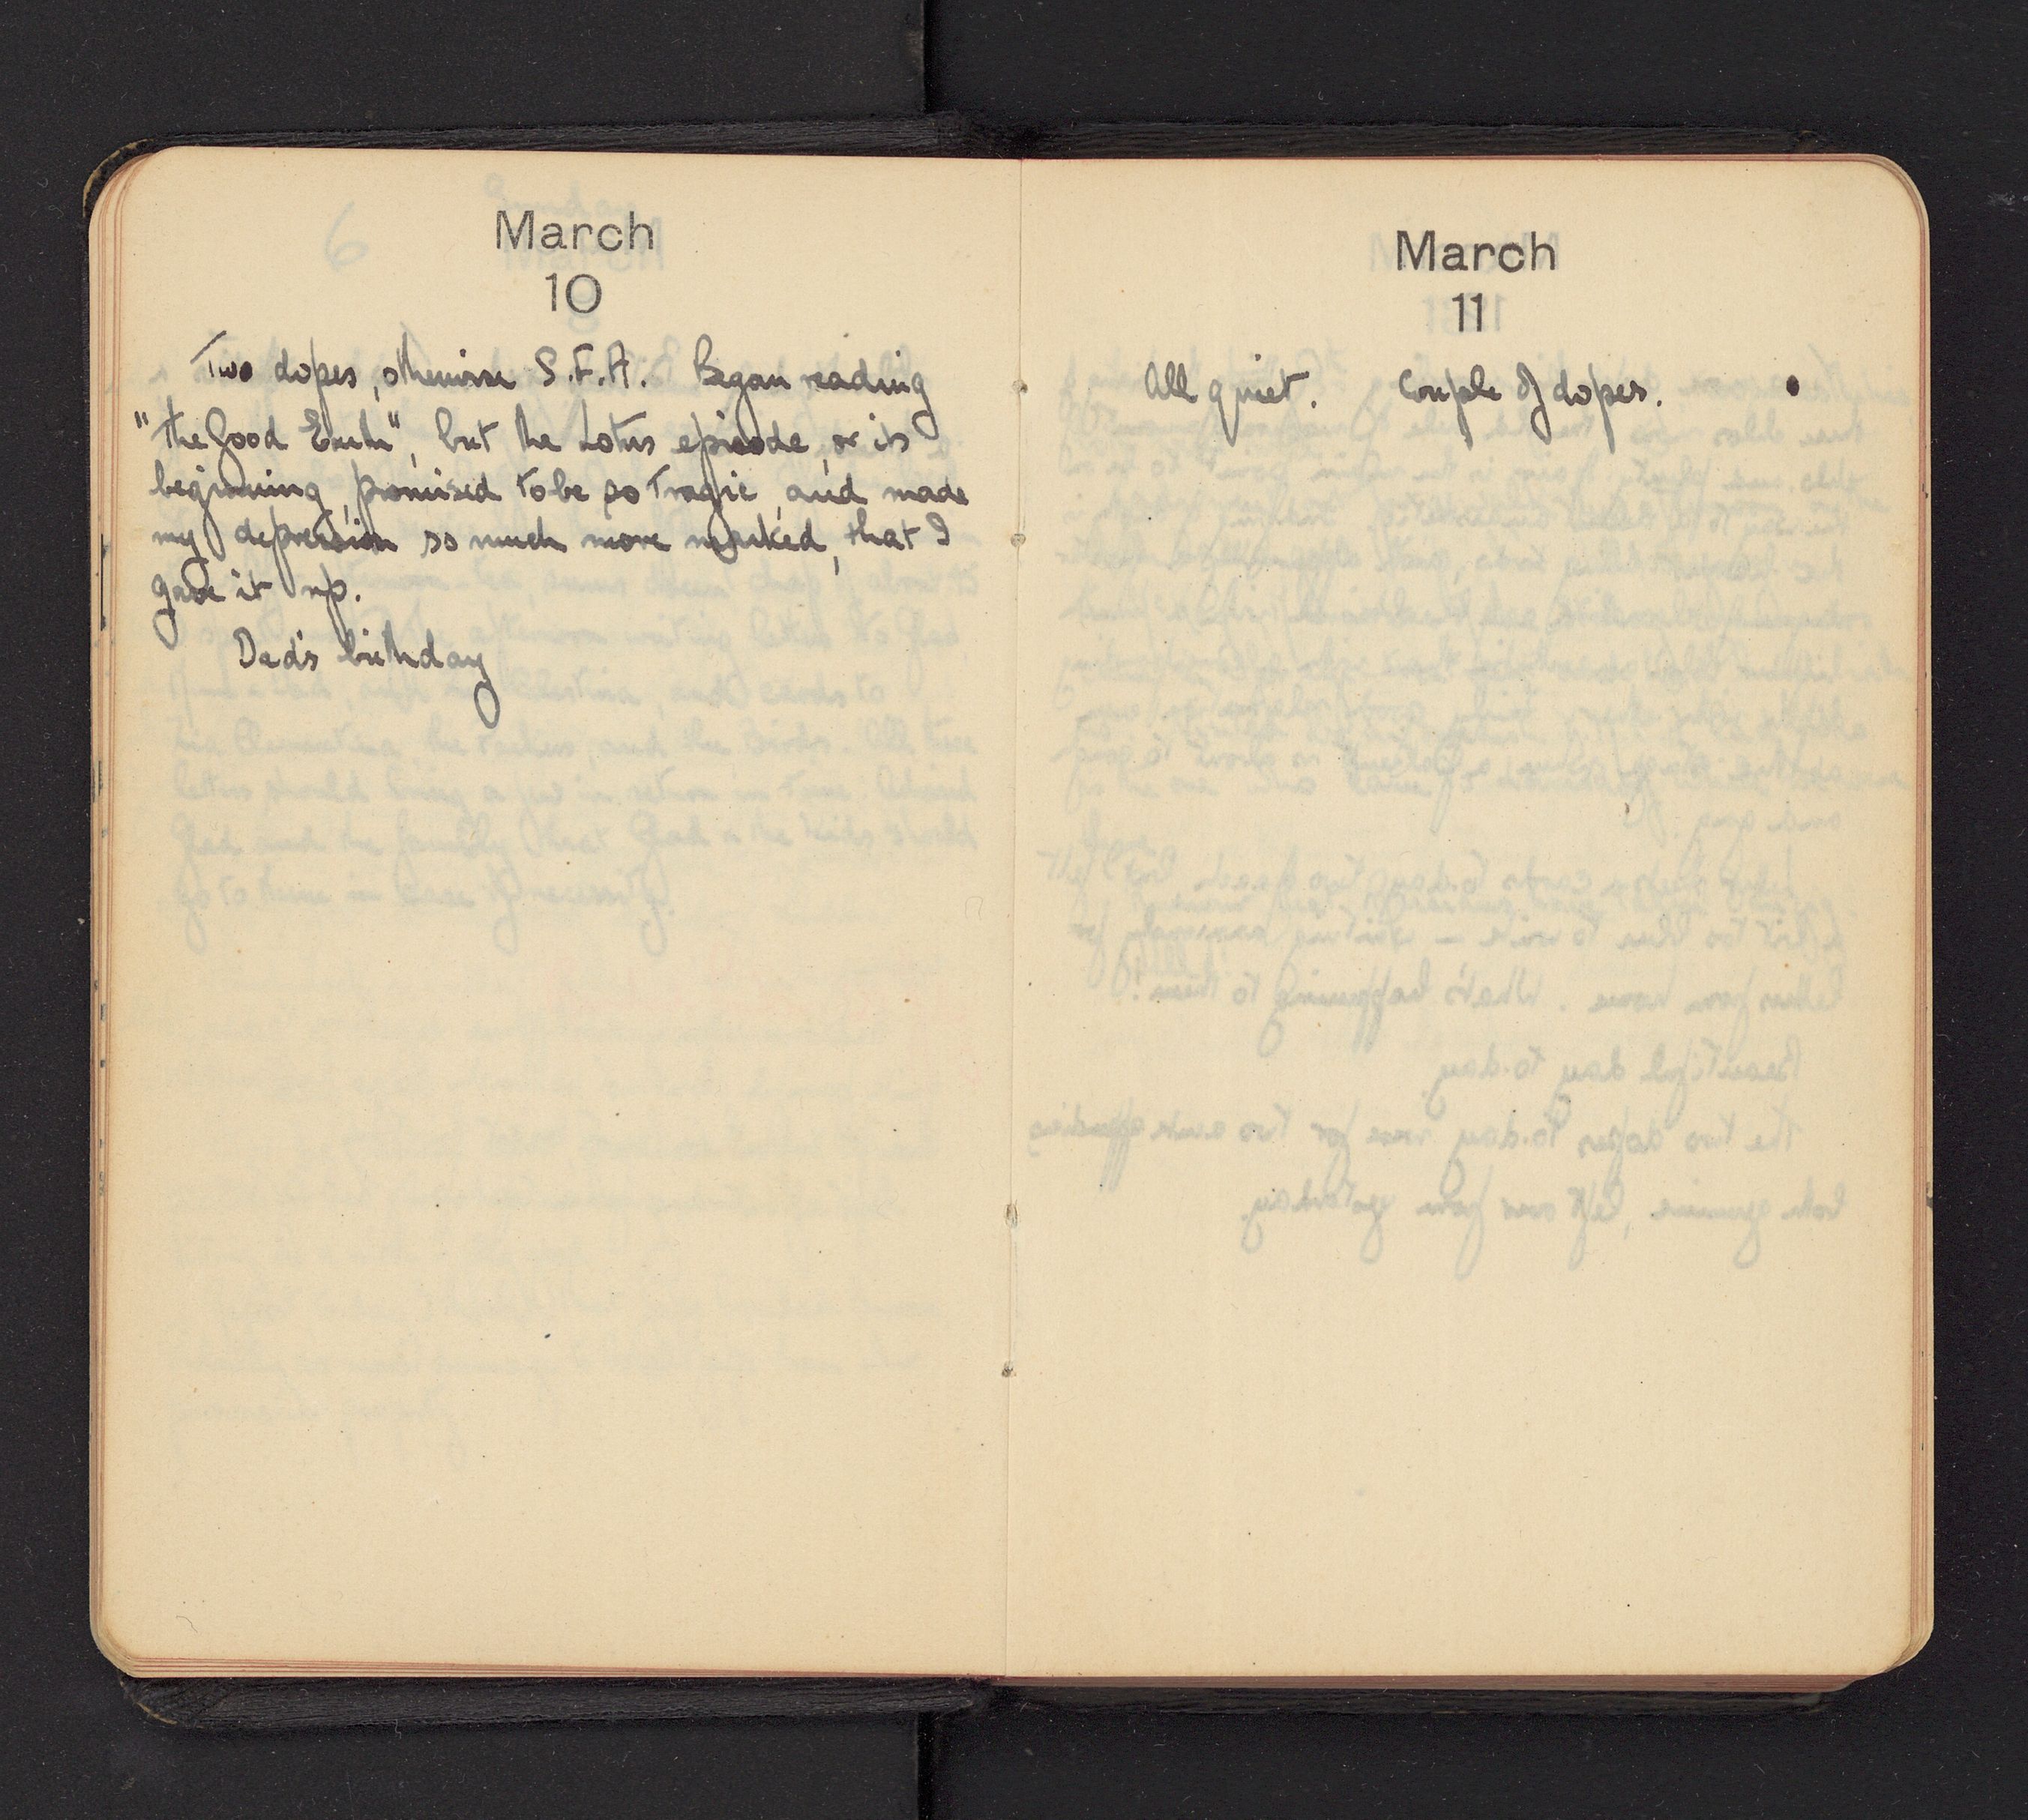 March
10
Two dopes, otherwise S.F.A. Began reading
"The Good Earth", but the Lotus episode, or its
beginning, promised to be so tragic, and made
my depression so much more marked, that I
gave it up.
Dad's birthday
March
11
All quiet. Couple of dopes.